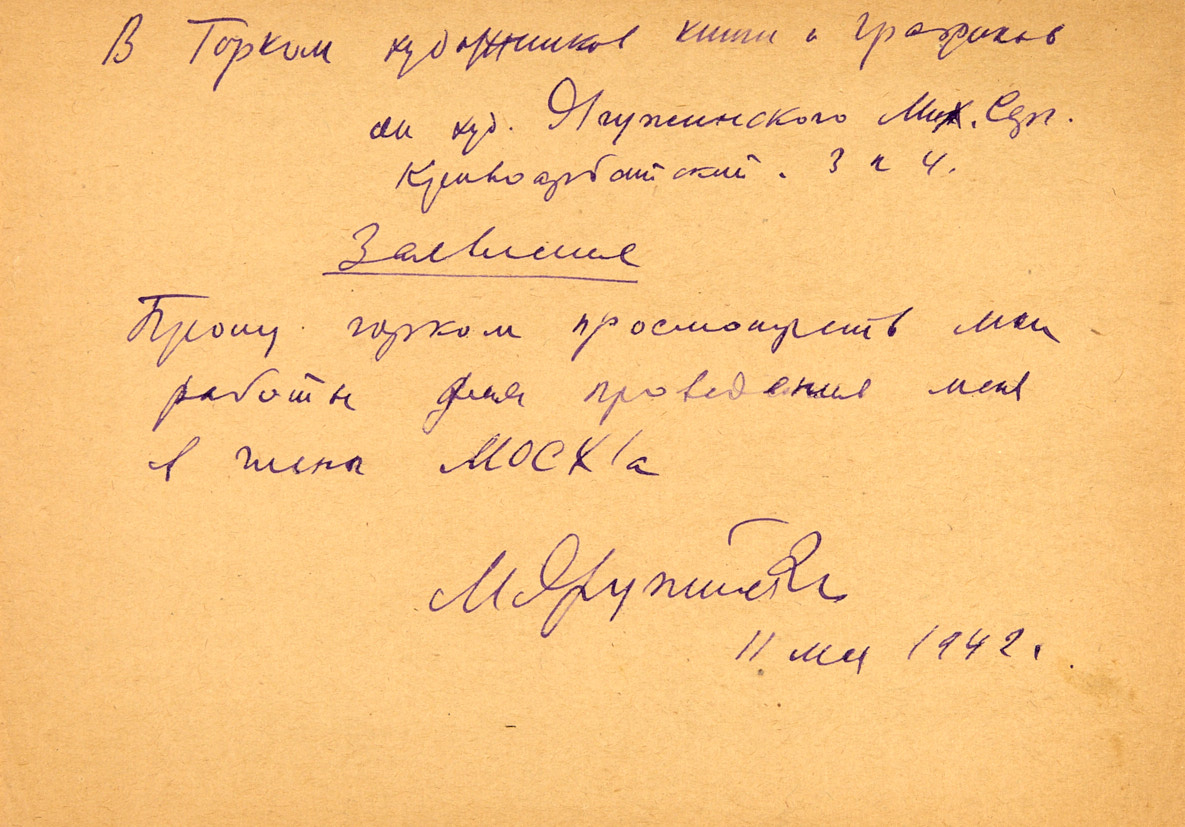 В Горком художников книги и графиков
от худ. Ягужинского Мих. Сер.
Кривоарбатский. 3 к 4.
Заявление
Прошу горком просмотреть мои
работы для проведения меня
в члены МОСХ'а
М Ягужинский
11 мая 1942 г.